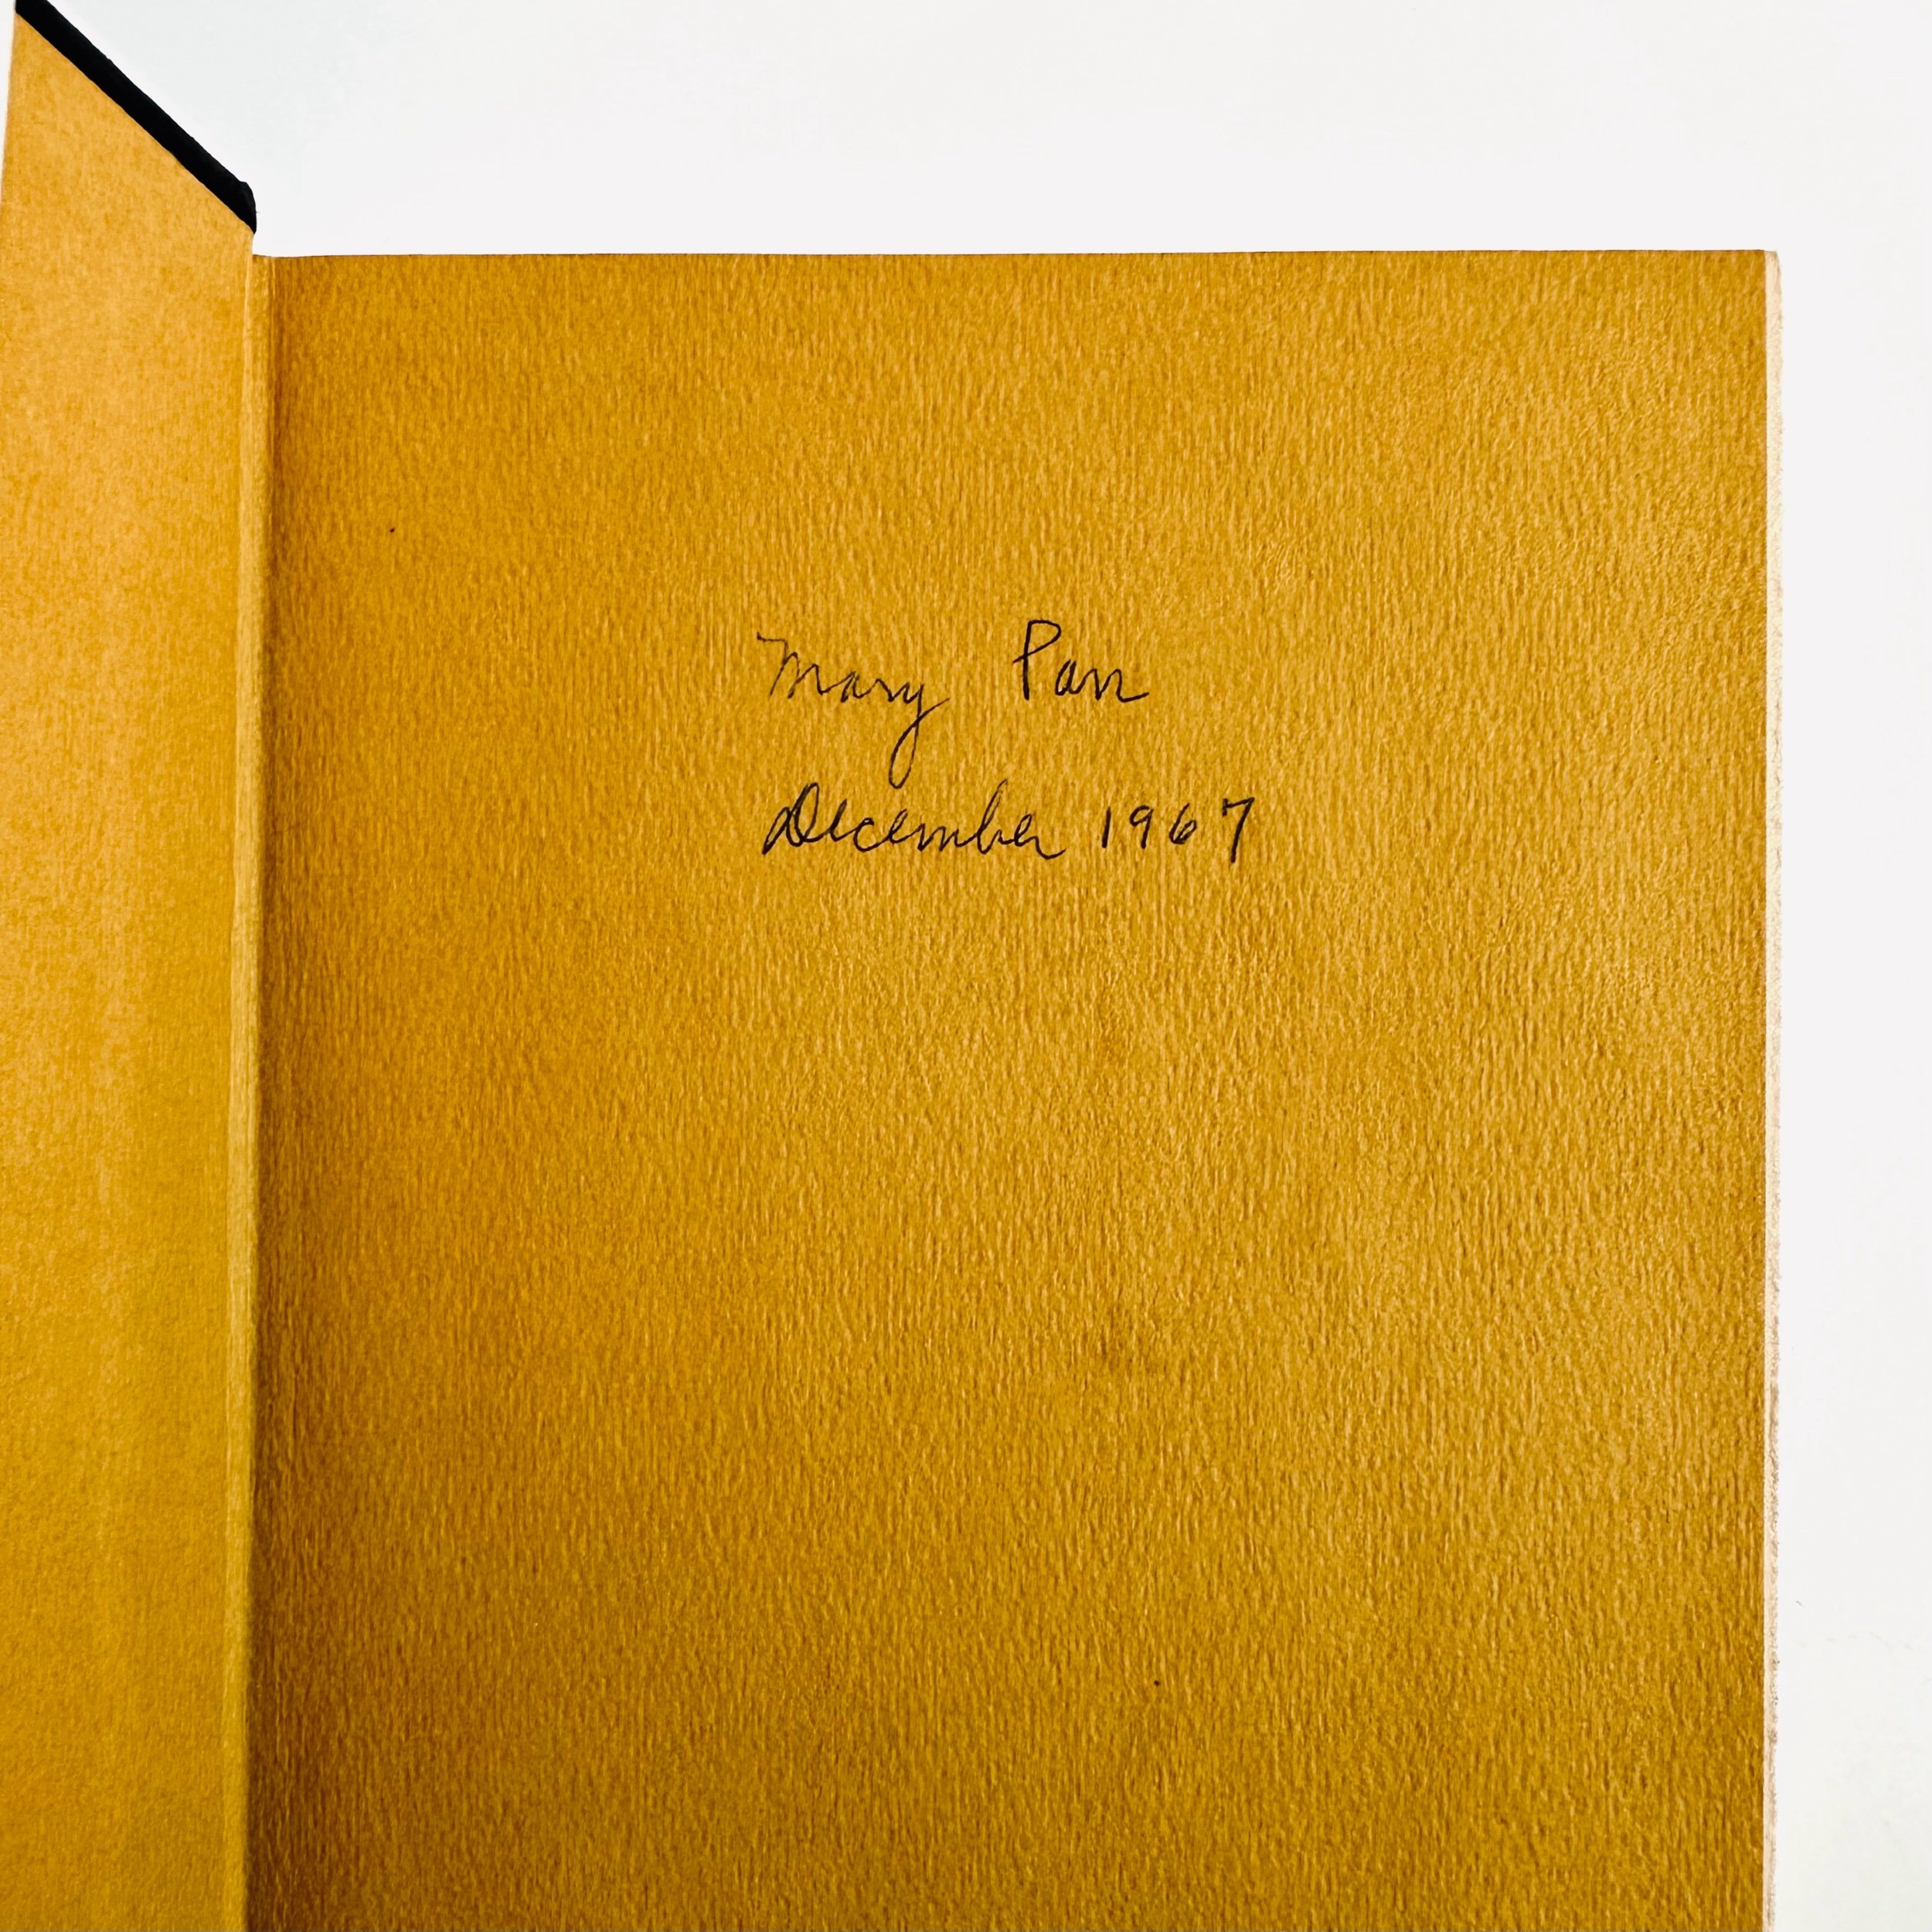 Mary Parr
December 1967